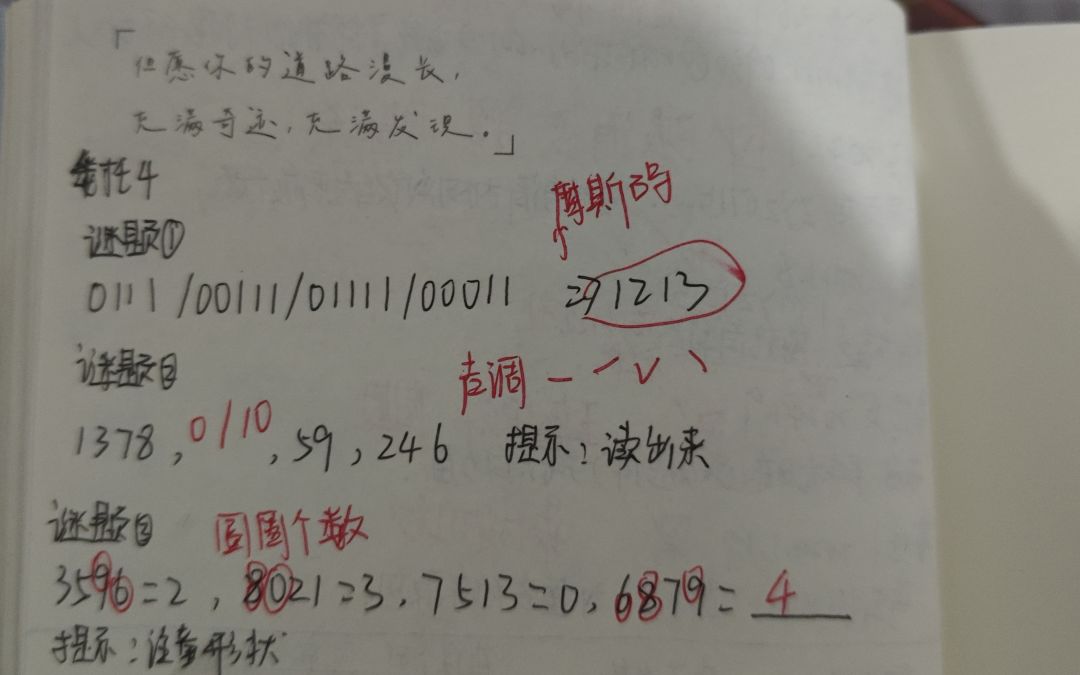 「
但愿你的道路漫长，
充满奇迹，充满发现。」
委托4
摩斯码
谜题①
0111/00111/01111/00011 => 1213
谜题②
声调 ー ˊ ˇ ˋ
1378，0/10，59，246 提示：读出来
谜题③ 圆圈个数
3596=2，8021=3，7513=0，6879=4
提示：注意形状